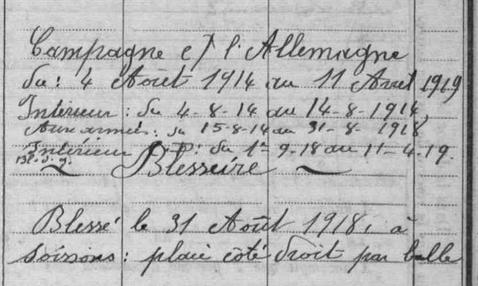 Campagne c/ l'Allemagne
du: 4 Août 1914 au 11 Avril 1919
Intérieur: du 4-8-14 au 14-8-1914,
Aux armées: du 15-8-14 au 31-8-1918
Intérieur du 1er-9-18 au 11-4-19.
Blessure
Blessé le 31 Août 1918, à
Soissons: plaie côté droit par balle